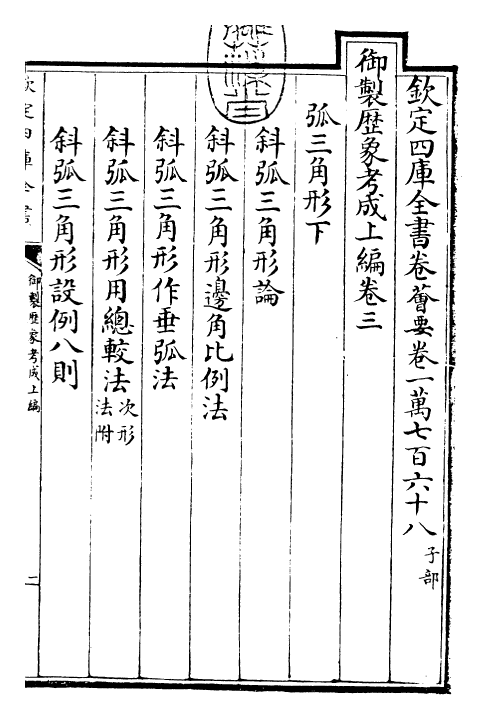 欽定四庫全書卷薈要卷一萬七百六十八 子部
御製歷象考成上編卷三
弧三角形下
斜弧三角形論
斜弧三角形邊角比例法
斜弧三角形作垂弧法
斜弧三角形用總較法次形法附
斜弧三角形設例八則
欽定四庫全書
御製歷象考成上編
二